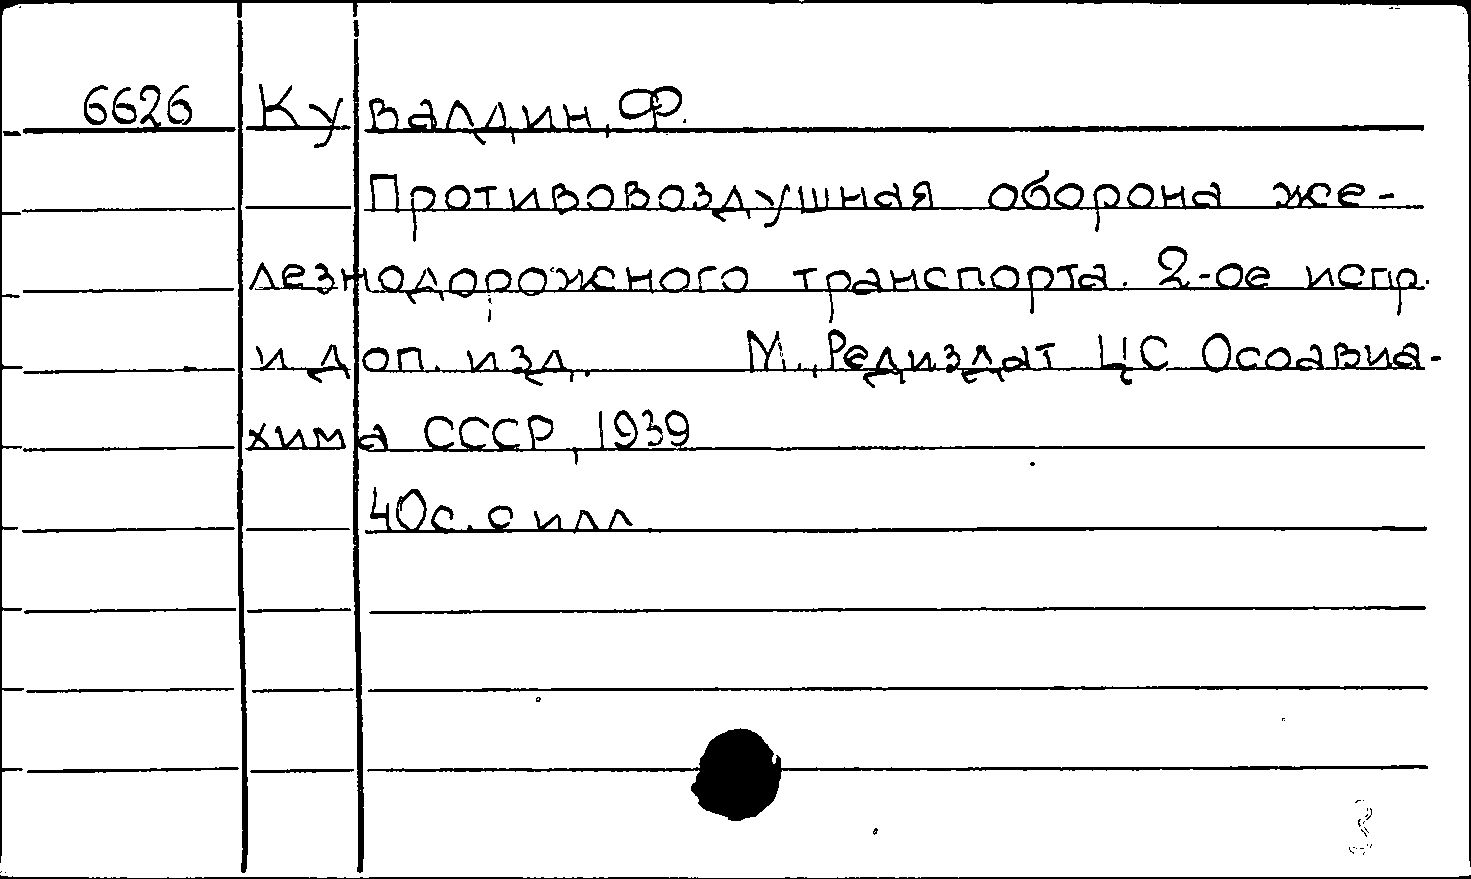 6626 Кувалдин, Ф.
Противовоздушная оборона же-
лезнодорожного транспорта. 2-ое испр.
и доп. изд. М., Редиздат ЦС Осоавиа-
хима СССР, 1939
40с. с илл.